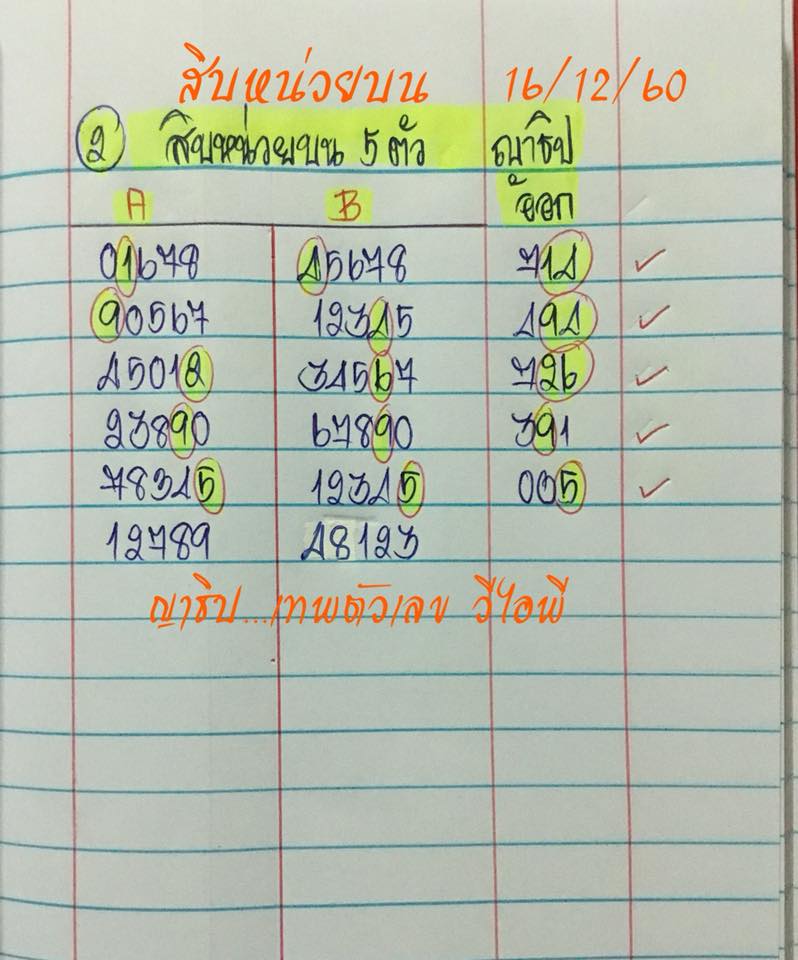 สิบหน่วยบน 16/12/60
2 สิบหน่วยบน 5 ตัว ญาธิป
A B ออก
01678 45678 714
90567 12345 494
45012 34567 726
23890 67890 391
78345 12345 035
12789 48123
ญาธิป...เทพตัวเลข วีไอพี